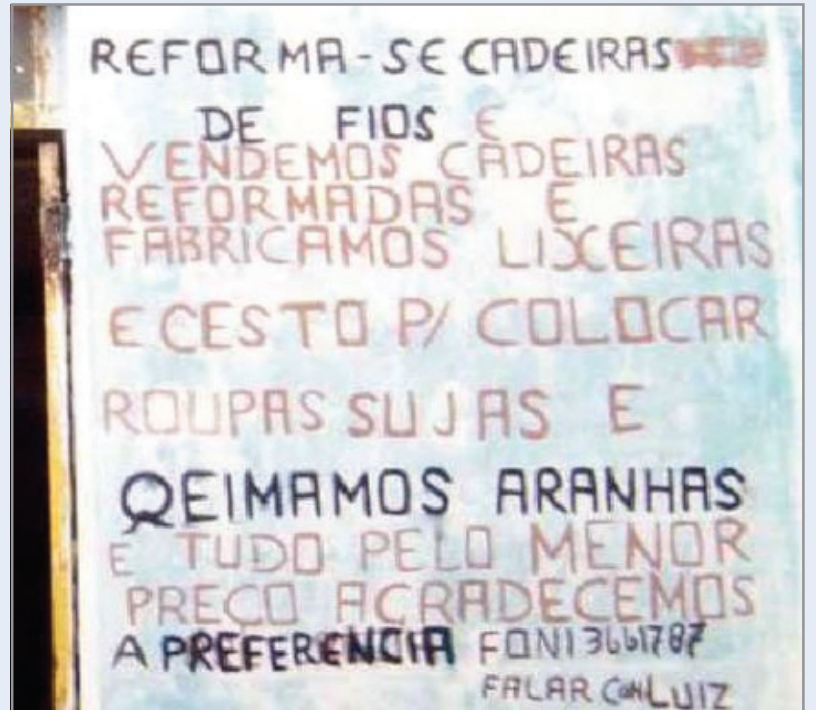 REFORMA-SE CADEIRAS
DE FIOS E
VENDEMOS CADEIRAS
REFORMADAS E
FABRICAMOS LIXEIRAS
E CESTO P/ COLOCAR
ROUPAS SUJAS E
QEIMAMOS ARANHAS
E TUDO PELO MENOR
PRECO ACRADECEMOS
A PREFERENCIA FONI 3661787
FALAR CON LUIZ